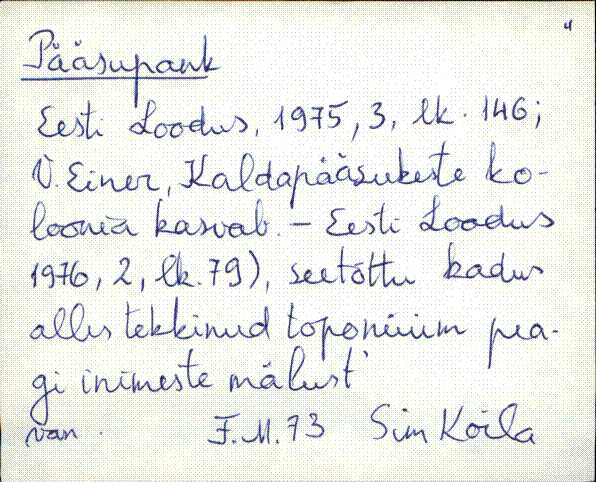 4
Pääsupank
Eesti Loodus, 1975, 3, lk. 146;
V. Einer, Kaldapääsukeste ko-
loonia kasvab. – Eesti Loodus
1976, 2, lk. 79), seetõttu kadus
alles tekkinud toponüüm pea-
gi inimeste mälust'
van. F.M. 73 Sim Köila